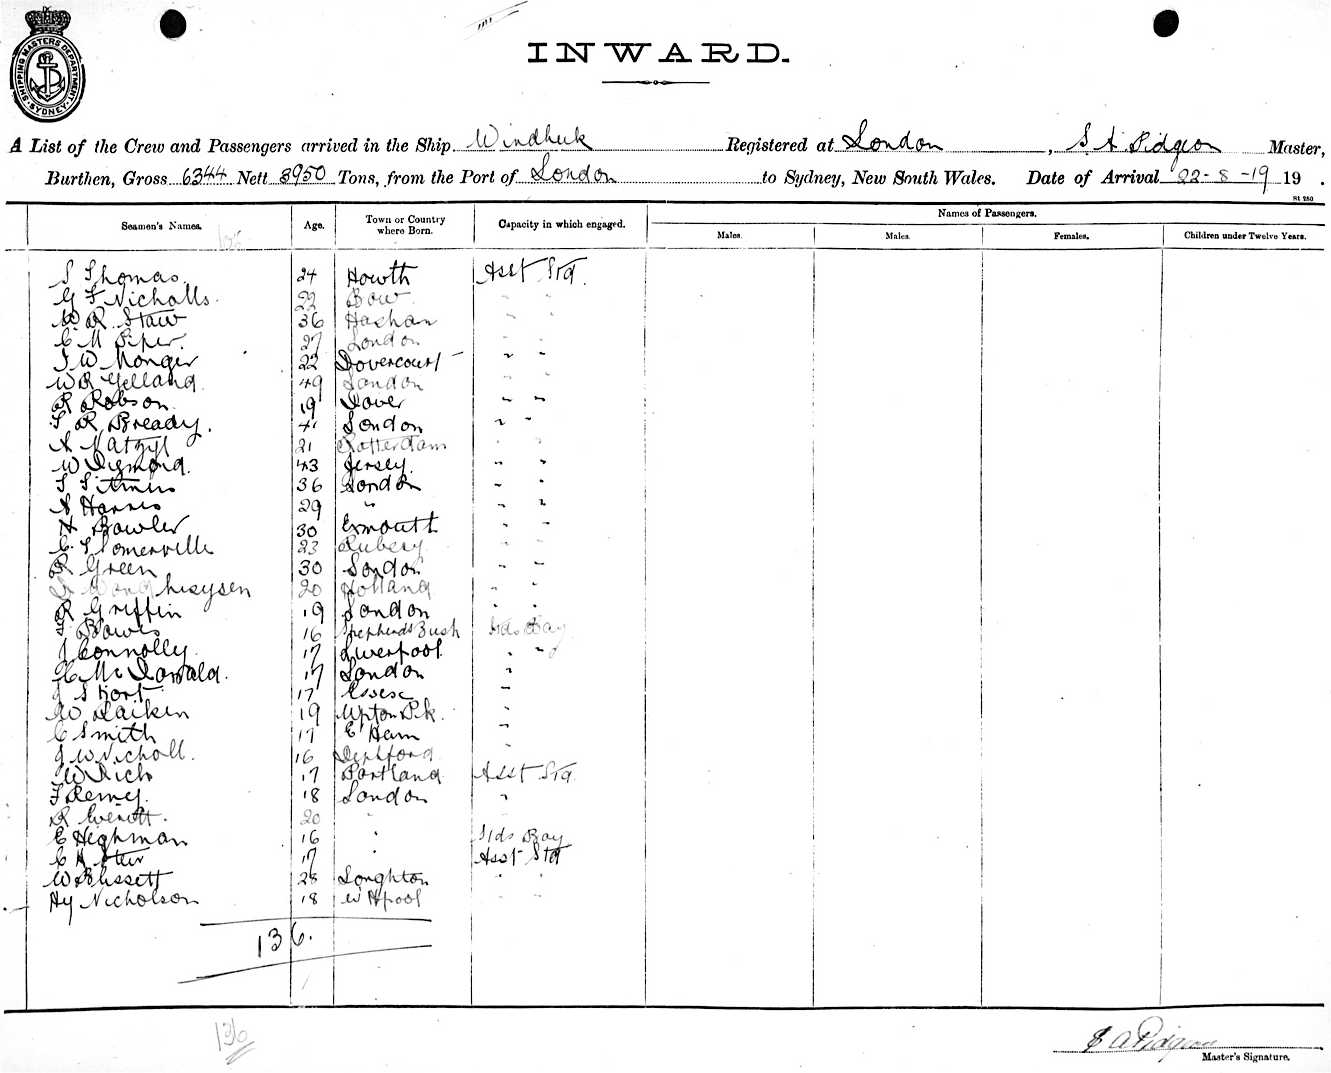 SHIPPING MASTERS DEPARTMENT. SYDNEY
INWARD.
A List of the Crew and Passengers arrived in the Ship Windhuk Registered at London, S A Pidgeon Master,
Burthen, Gross 6344 Nett 3950 Tons, from the Port of London to Sydney, New South Wales. Date of Arrival 22-8-19 19 .
St 250
Seamen's Names. Age. Town or Country where Born. Capacity in which engaged. Names of Passengers.
Males. Males. Females. Children under Twelve Years.
S Thomas 24 Howth Asst Std.
G F Nicholls 22 Bow " "
W R Staw 36 " "
C M Piper. 27 London " "
J W Monger 22 Dovercourt " "
W R Yelland 49 London " "
R Robson 19 Dover " "
F R Bready. 41 London " "
A 21 Rotterdam " "
W Dymond. 43 Jersey. " "
S 36 London " "
A Harris 29 " " "
H Bowler 30 Exmouth " "
C. Somerville 23 Rubery " "
R Green 30 London " "
20 Holland " "
R Griffin 19 London " "
F Bowis 16 Shepherds Bush Stds Boy
J Connolly 17 Liverpool " "
C McDonald. 17 London "
J Short 17 Essex "
W Laiken 19 Upton Pk. "
C Smith 17 E Ham "
J W Nicholl. 16 Deptford "
W Rich 17 Portland Asst Std
F 18 London "
R Everett. 20 "
E Highman 16 " Stds Boy
C A Stew 17 " Asst Std
W Blissett 28 Loughton " "
Hy Nicholson 18 W Hpool " "
136.
136
S A Pidgeon
Master's Signature.